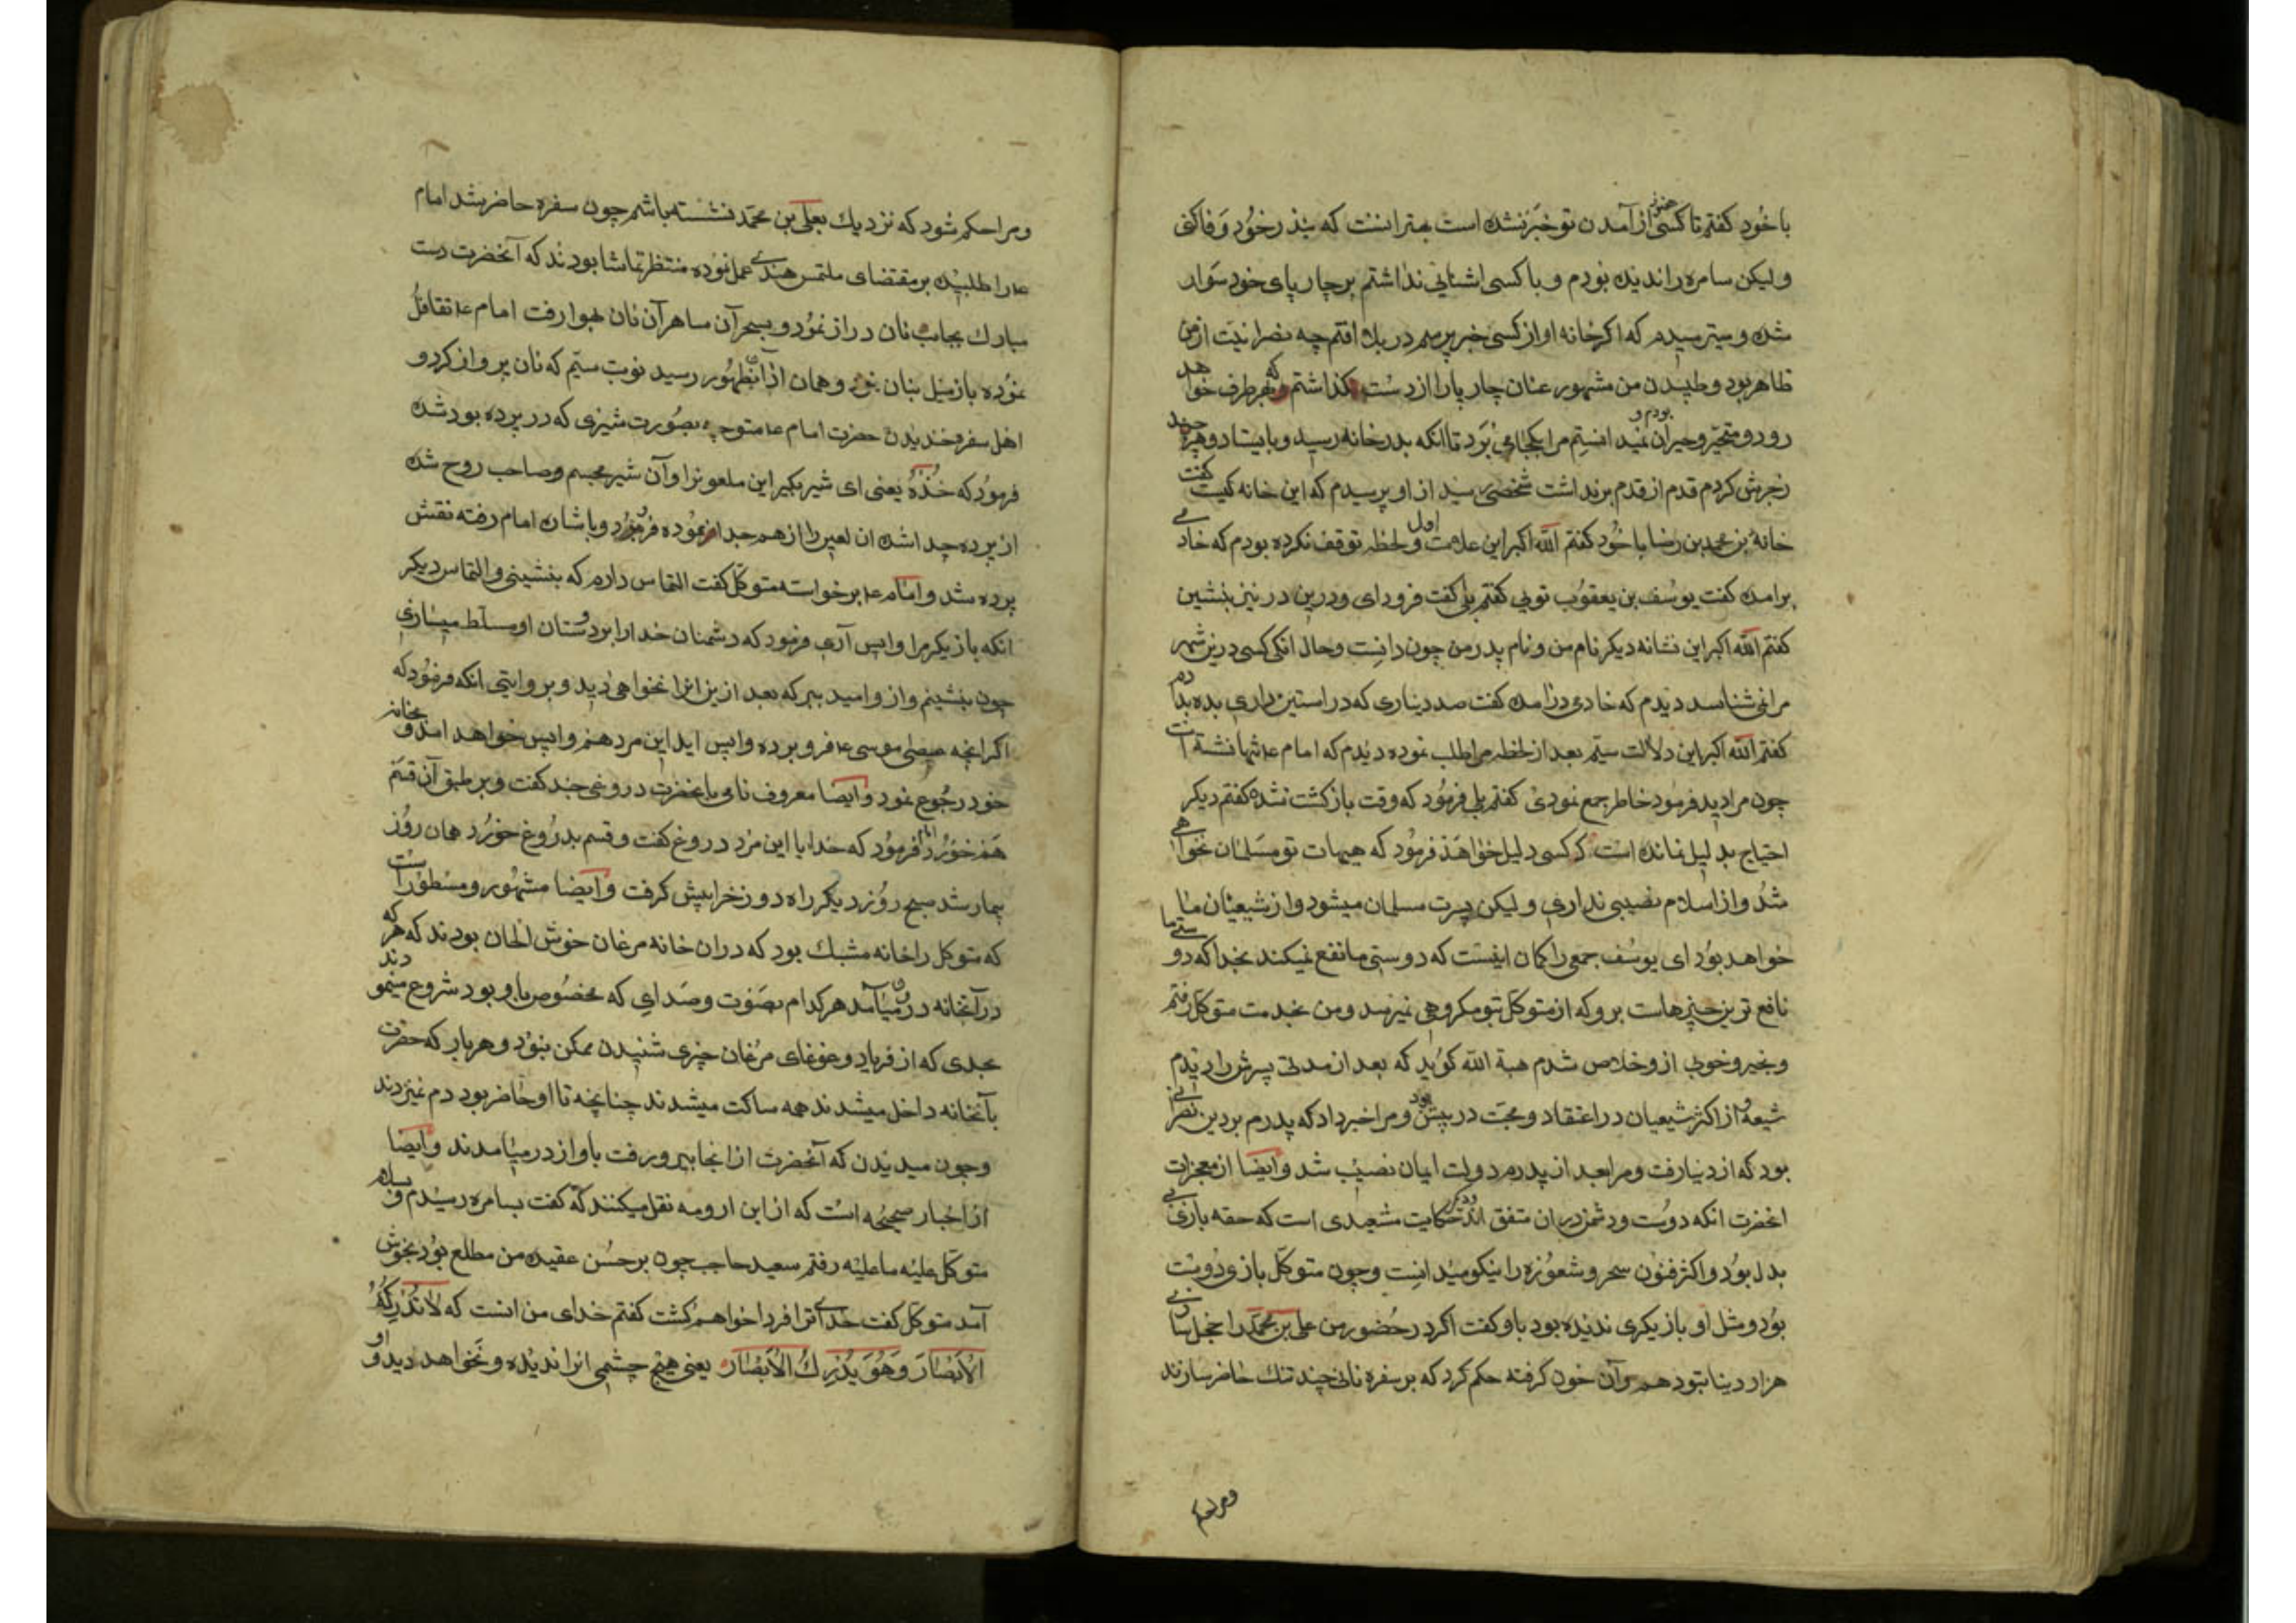 با خود کفتم تا کسی هنوز از آمدن تو خبر نشده است بهتر انست که نذر خود وفا کنی
و لیکن سامره را ندیده بودم و با کسی اشنایی نداشتم بر چارپای خود سوار
شده و میترسیدم که اکر خانه او از کسی خبر پرسم در بلا افتم چه نصرانیت از من
ظاهر بود و طپیدن من مشهور عنان چارپا را از دست بکذاشتم که بهر طرف خواهد
رود و متحیر و حیران بودم و نمید انستم مرا بکجا می برد تا انکه بدر خانه رسید و بایستاد و هر چند
زجرش کردم قدم از قدم برنداشت شخصی رسید از او پرسیدم که این خانه کیست کفت
خانه بن محمد بن رضا با خود کفتم الله اکبر این علامت اول و لحظه توقف نکرده بودم که خادمی
برامد کفت یوسف بن یعقوب تویی کفتم بلی کفت فرود ای و درین در نیز بنشین
کفتم الله اکبر این نشانه دیکر نام من و نام پدر من چون دانست و حال انکی کسی درین شهر
مرا نمی شناسد دیدم که خادمی درامد کفت صد دیناری که در استین داری بده بدادم
کفتم الله اکبر این دلالت سیم بعد از لحظه مرا طلب نموده دیدم که امام ع تنها نشسته است
چون مرا دید فرمود خاطر جمع نمودی کفتم بلی فرمود که وقت بازکشت نشده کفتم دیکر
احتیاج بدلیل نمانده است کر کسی دلیل خواهد فرمود که هیهات تو مسلمان نخواهی
شد و از اسلام نصیبی نداری و لیکن پسرت مسلمان میشود و از شیعیان ما
خواهد بود ای یوسف جمعی را کمان اینست که دوستی ما نفع نمیکند بخدا که دوستی ما
نافع ترین چیزهاست برو که از متوکل بتو مکروهی نمیرسد و من بخدمت متوکل رفتم
و بخیر و خوبی ازو خلاص شدم هبة الله کوید که بعد از مدتی پسرش را دیدم
شیعه و از اکثر شیعیان در اعتقاد و محبت در پیش بود و مرا خبر داد که پدرم بر دین نصرانی
بود که از دنیا رفت و مرا بعد از پدرم دولت ایمان نصیب شد و ایضا از معجزات
انحضرت انکه دوست و دشمن دران متفق اند حکایت مشعبدی است که حقه بازی
بدل بود و اکثر فنون سحر و شعوزه را نیکو میدانست و چون متوکل بازی دوست
بود و مثل او بازیکری ندیده بود باو کفت اکر در حضور من علی بن محمد را خجل سازی
هزار دینا بتو دهم و آن خون کرفته حکم کرد که بر سفره نانی چند تنک حاضر سازند
و مرا حکم
و مرا حکم شود که نزدیک بعلی بن محمد نشسته باشم چون سفره حاضر شد امام
ع را طلبیده بر مقتضای ملتمس هندی عمل نموده منتظر تماشا بودند که آنحضرت دست
مبارک بجانب نان دراز نمود و بسحر آن ساحر آن نان بهوا رفت امام ع تغافل
نموده باز میل بنان نمود و همان از آن بظهور رسید نوبت سیم که نان پرواز کرد و
اهل سفره خندیدن حضرت امام ع متوجه بصورت شیری که در پرده بود شده
فرمود که خذه یعنی ای شیر بکیر این ملعونرا و آن شیر مجسم و صاحب روح شده
از پرده جدا شده ان لعین را از هم جدا نموده فرو برد و باشاره امام رفته نقش
پرده شد و امام ع برخواست متوکل کفت التماس دارم که بنشینی و التماس دیکر
انکه بازیکر مرا واپس آری فرمود که دشمنان خدا را بر دوستان او مسلط میسازی
چون بنشینم و از و امید ببر که بعد ازین انرا نخواهی دید و بروایتی انکه فرمود که
اکر انچه عصای موسی ع فرو برده واپس اید این مرد هم واپس خواهد امد و بخانه
خود رجوع نمود و ایضا معروف نامی با انحضرت دروغی چند کفت و بر طبق آن قسم
هم خورد امام فرمود که خدایا این مرد دروغ کفت و قسم بدروغ خورد همان روز
بیمار شد صبح روز دیکر راه دوزخ را پیش کرفت و ایضا مشهور و مسطور است
که متوکل را خانه مشبک بود که دران خانه مرغان خوش الحان بودند که هر که
در آنخانه در میآمد هر کدام بصوت و صدای که مخصوص باو بود شروع مینمودند
بحدی که از فریاد و غوغای مرغان چیزی شنیدن ممکن نبود و هر بار که حضرت
بآنخانه داخل میشد ند همه ساکت میشدند چنانچه تا او حاضر بود دم نمیزدند
و چون میدیدن که آنحضرت از انجا بیرو رفت باواز در میامدند و ایضا
از اخبار صحیحه است که از ابن ارومه نقل میکنند که کفت بسامره رسیدم و بسلام
متوکل علیه ما علیه رفتم سعید حاجب چون بر حسن عقیده من مطلع بود بخوش
آمد متوکل کفت خدای ترا فردا خواهم کشت کفتم خدای من انست که لا تدرکه
الابصار و هو یدرک الابصار یعنی هیچ چشمی انرا ندیده و نخواهد دید و او